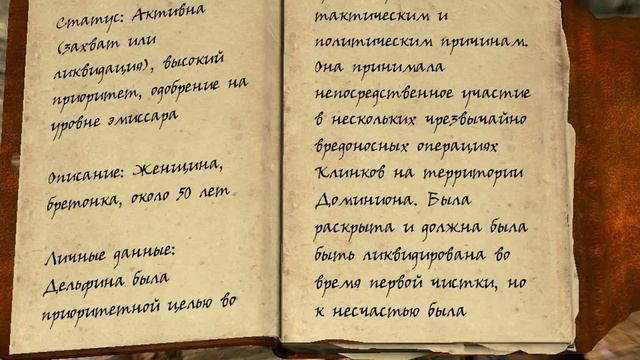 Статус: Активна
(захват или
ликвидация), высокий
приоритет, одобрение на
уровне эмиссара
Описание: Женщина,
бретонка, около 50 лет
Личные данные:
Дельфина была
приоритетной целью во
тактическим и
политическим причинам.
Она принимала
непосредственное участие
в нескольких чрезвычайно
вредоносных операциях
Клинков на территории
Доминиона. Была
раскрыта и должна была
быть ликвидирована во
время первой чистки, но
к несчастью была